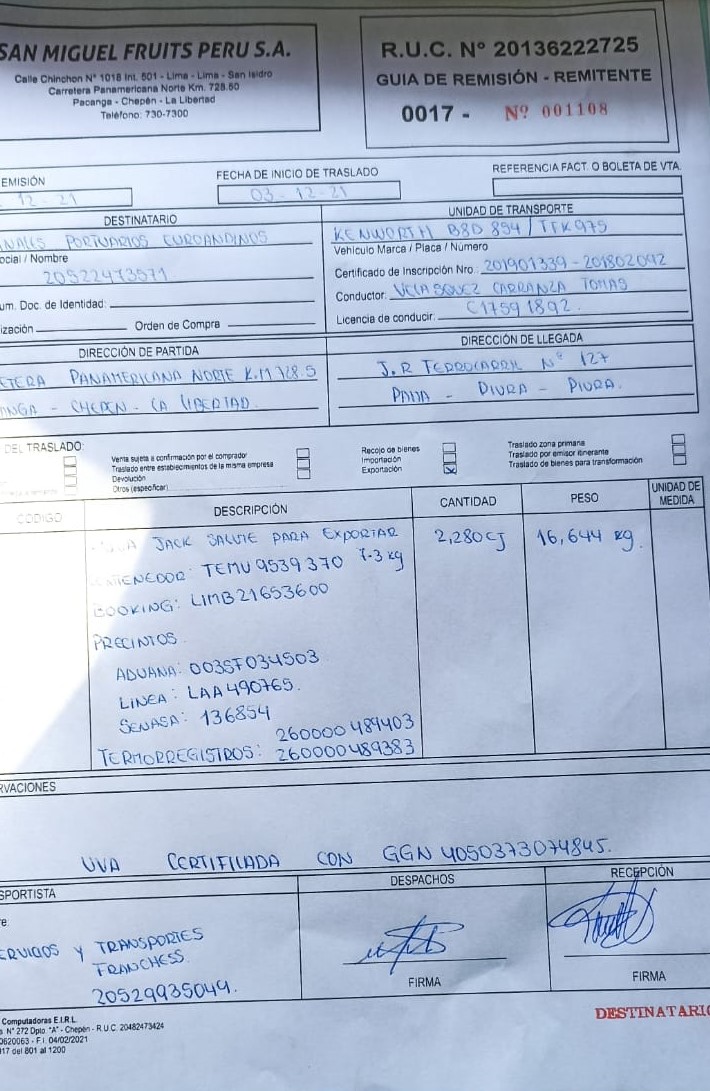 SAN MIGUEL FRUITS PERU S.A.
Calle Chinchon N° 1018 Int. 501 - Lima - Lima - San Isidro
Carretera Panamericana Norte Km. 728.50
Pacanga - Chepén - La Libertad
Teléfono: 730-7300
R.U.C. N° 20136222725
GUIA DE REMISIÓN - REMITENTE
0017 - Nº 001108
EMISIÓN
12-21
FECHA DE INICIO DE TRASLADO
03-12-21
REFERENCIA FACT. O BOLETA DE VTA.
DESTINATARIO
PORTUARIOS EUROANDINOS
ocial / Nombre
20522473571
um. Doc. de Identidad:
ización Orden de Compra
UNIDAD DE TRANSPORTE
KENWORTH B8D 894 / TFK975
Vehículo Marca / Placa / Número
Certificado de Inscripción Nro.: 201901339 - 201802092
Conductor: VELASQUEZ CARRANZA TOMAS
Licencia de conducir: C17591892.
DIRECCIÓN DE PARTIDA
TERA PANAMERICANA NORTE K.M 728.5
ANGA - CHEPEN - LA LIBERTAD.
DIRECCIÓN DE LLEGADA
J.R FERROCARRIL Nº 127
PAITA - PIURA - PIURA.
DEL TRASLADO:
Venta sujeta a confirmación por el comprador
Traslado entre establecimientos de la misma empresa
Devolución
Otros (especificar)
Recojo de bienes
Importación
Exportación
Traslado zona primaria
Traslado por emisor itinerante
Traslado de bienes para transformación
CÓDIGO
DESCRIPCIÓN
CANTIDAD
PESO
UNIDAD DE MEDIDA
JACK SALUTE PARA EXPORTAR 2,280CJ 16,644 kg.
CONTENEDOR: TEMU 9539370 7.3 kg
BOOKING: LIMB21653600
PRECINTOS
ADUANA: 003SF034503
LINEA: LAA490765.
SENASA: 136854
260000489403
TERMORREGISTROS: 260000489383
RVACIONES
UVA CERTIFICADA CON GGN 4050373074845.
SPORTISTA
DESPACHOS
RECEPCIÓN
ERVICIOS Y TRANSPORTES
FRANCHESS
20529935049.
FIRMA
FIRMA
DESTINATARIO
Computadoras E.I.R.L.
N° 272 Dpto. "A" - Chepén - R.U.C. 20482473424
0620063 - F.I. 04/02/2021
17 del 801 al 1200